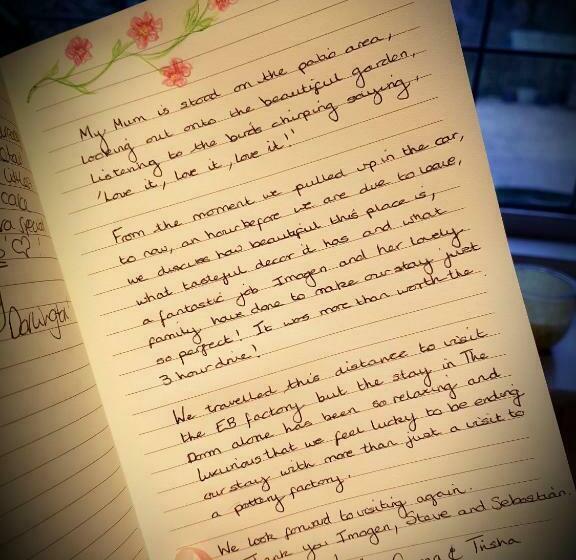 My Mum is stood on the patio area,
looking out onto the beautiful garden,
listening to the birds chirping saying,
'Love it, love it, love it!!'
From the moment we pulled up in the car,
to now, an hour before we are due to leave,
we discuss how beautiful this place is,
what tasteful decor it has and what
a fantastic job Imogen and her lovely
family have done to make our stay just
so perfect! It was more than worth the
3 hour drive!
We travelled this distance to visit
the EB factory but the stay in The
Dorm alone has been so relaxing and
luxurious that we feel lucky to be ending
our stay with more than just a visit to
a pottery factory.
We look forward to visiting again.
Thank you Imogen, Steve and Sebastian.
& Trisha